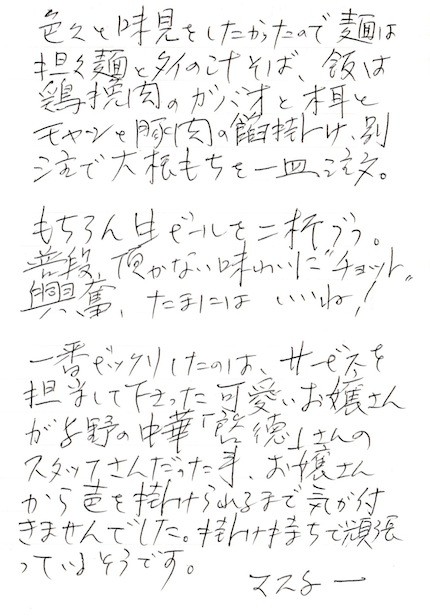 色々と味見をしたかったので麺は
担々麺とタイの汁そば、飯は
鶏挽肉のガパオと木耳と
モヤシと豚肉の餡掛け、別
注で大根もちを一皿注文。
もちろん生ビールを二杯づつ。
普段、頂かない味わいに"チョット"
興奮、たまにはいいね!
一番ビックリしたのは、サービスを
担当して下さった可愛いお嬢さん
が与野の中華「 徳」さんの
スタッフさんだった事、お嬢さん
から声を掛けられるまで気が付
きませんでした。掛け持ちで頑張
っているそうです。
マスター